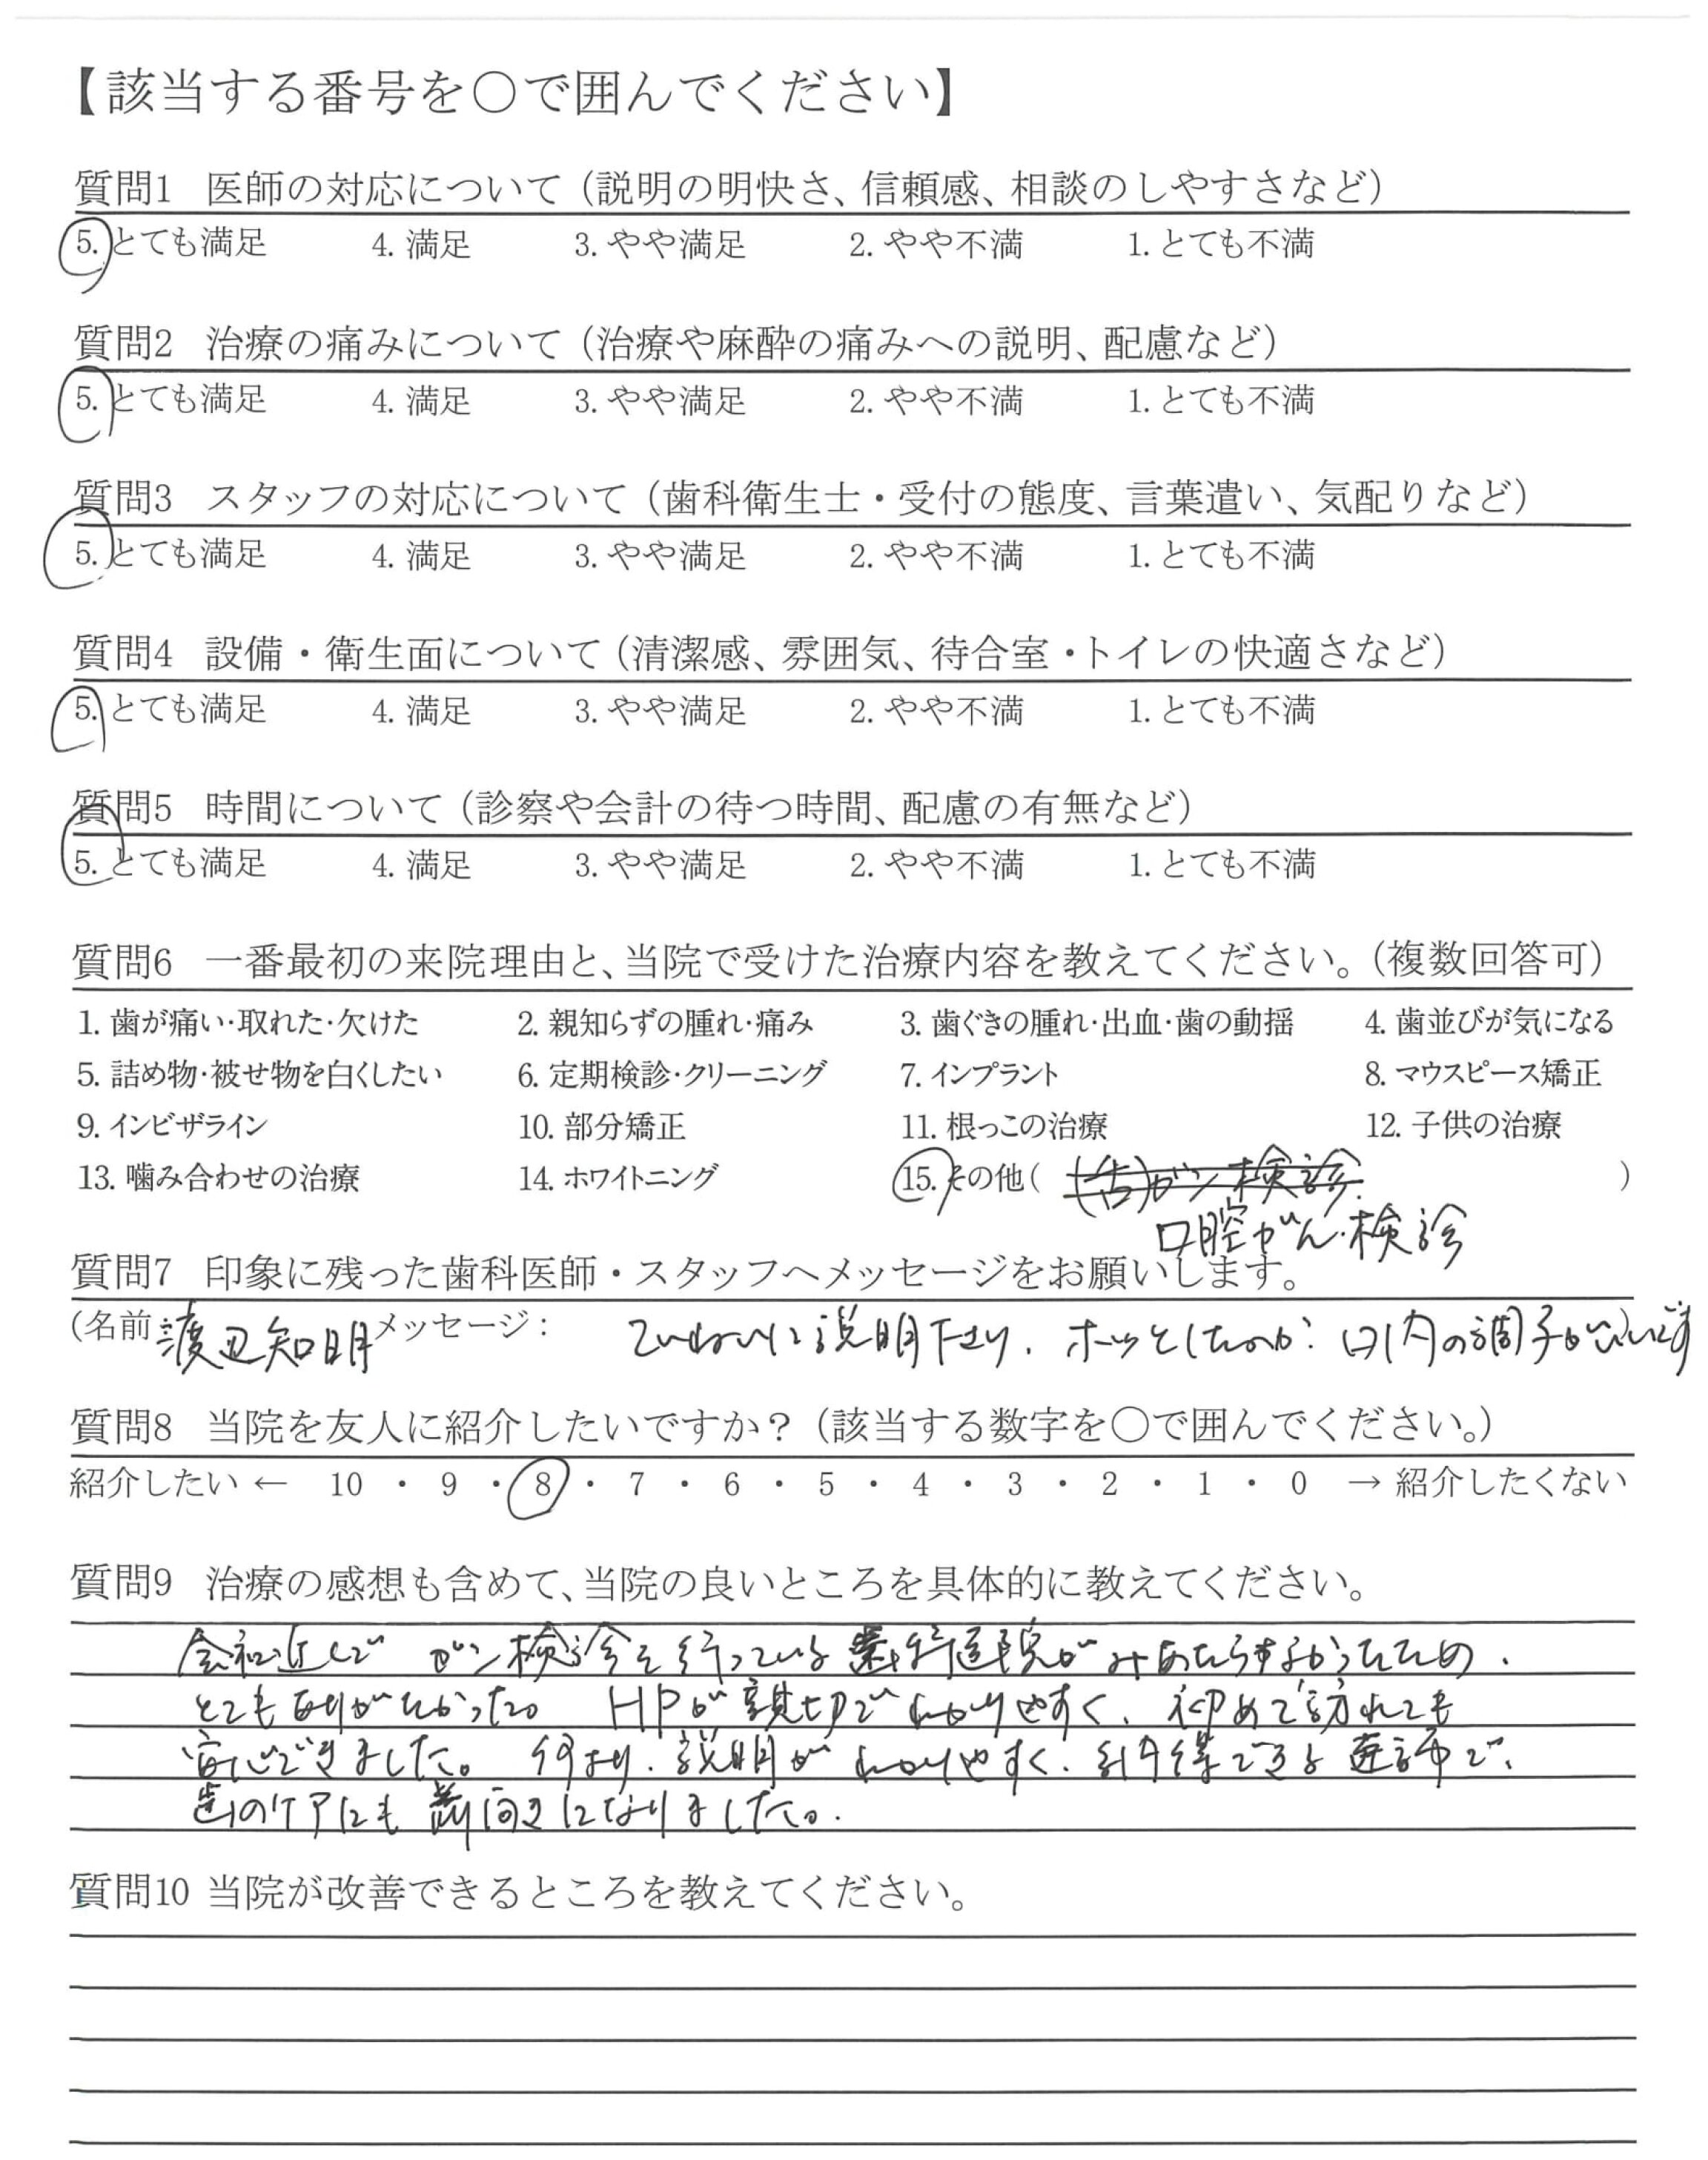 【該当する番号を〇で囲んでください】
質問1 医師の対応について（説明の明快さ、信頼感、相談のしやすさなど）
5. とても満足 4. 満足 3. やや満足 2. やや不満 1. とても不満
質問2 治療の痛みについて（治療や麻酔の痛みへの説明、配慮など）
5. とても満足 4. 満足 3. やや満足 2. やや不満 1. とても不満
質問3 スタッフの対応について（歯科衛生士・受付の態度、言葉遣い、気配りなど）
5. とても満足 4. 満足 3. やや満足 2. やや不満 1. とても不満
質問4 設備・衛生面について（清潔感、雰囲気、待合室・トイレの快適さなど）
5. とても満足 4. 満足 3. やや満足 2. やや不満 1. とても不満
質問5 時間について（診察や会計の待つ時間、配慮の有無など）
5. とても満足 4. 満足 3. やや満足 2. やや不満 1. とても不満
質問6 一番最初の来院理由と、当院で受けた治療内容を教えてください。（複数回答可）
1. 歯が痛い・取れた・欠けた 2. 親知らずの腫れ・痛み 3. 歯ぐきの腫れ・出血・歯の動揺 4. 歯並びが気になる
5. 詰め物・被せ物を白くしたい 6. 定期検診・クリーニング 7. インプラント 8. マウスピース矯正
9. インビザライン 10. 部分矯正 11. 根っこの治療 12. 子供の治療
13. 噛み合わせの治療 14. ホワイトニング 15. その他（ (舌)ガン検診 ）
口腔がん検診
質問7 印象に残った歯科医師・スタッフへメッセージをお願いします。
（名前 渡辺知明 メッセージ： ていねいに説明下さり、ホッとしたのか? 口内の調子がいいです
質問8 当院を友人に紹介したいですか？（該当する数字を〇で囲んでください。）
紹介したい ← 10 ・ 9 ・ 8 ・ 7 ・ 6 ・ 5 ・ 4 ・ 3 ・ 2 ・ 1 ・ 0 → 紹介したくない
質問9 治療の感想も含めて、当院の良いところを具体的に教えてください。
ガン検診を行っている歯科医院がみあたらなかったため、
とてもありがたかった。 HPが親切でわかりやすく、初めて訪れても
安心できました。 何より、説明がわかりやすく、納得できる医師で、
歯のケアにも前向きになりました。
質問10 当院が改善できるところを教えてください。